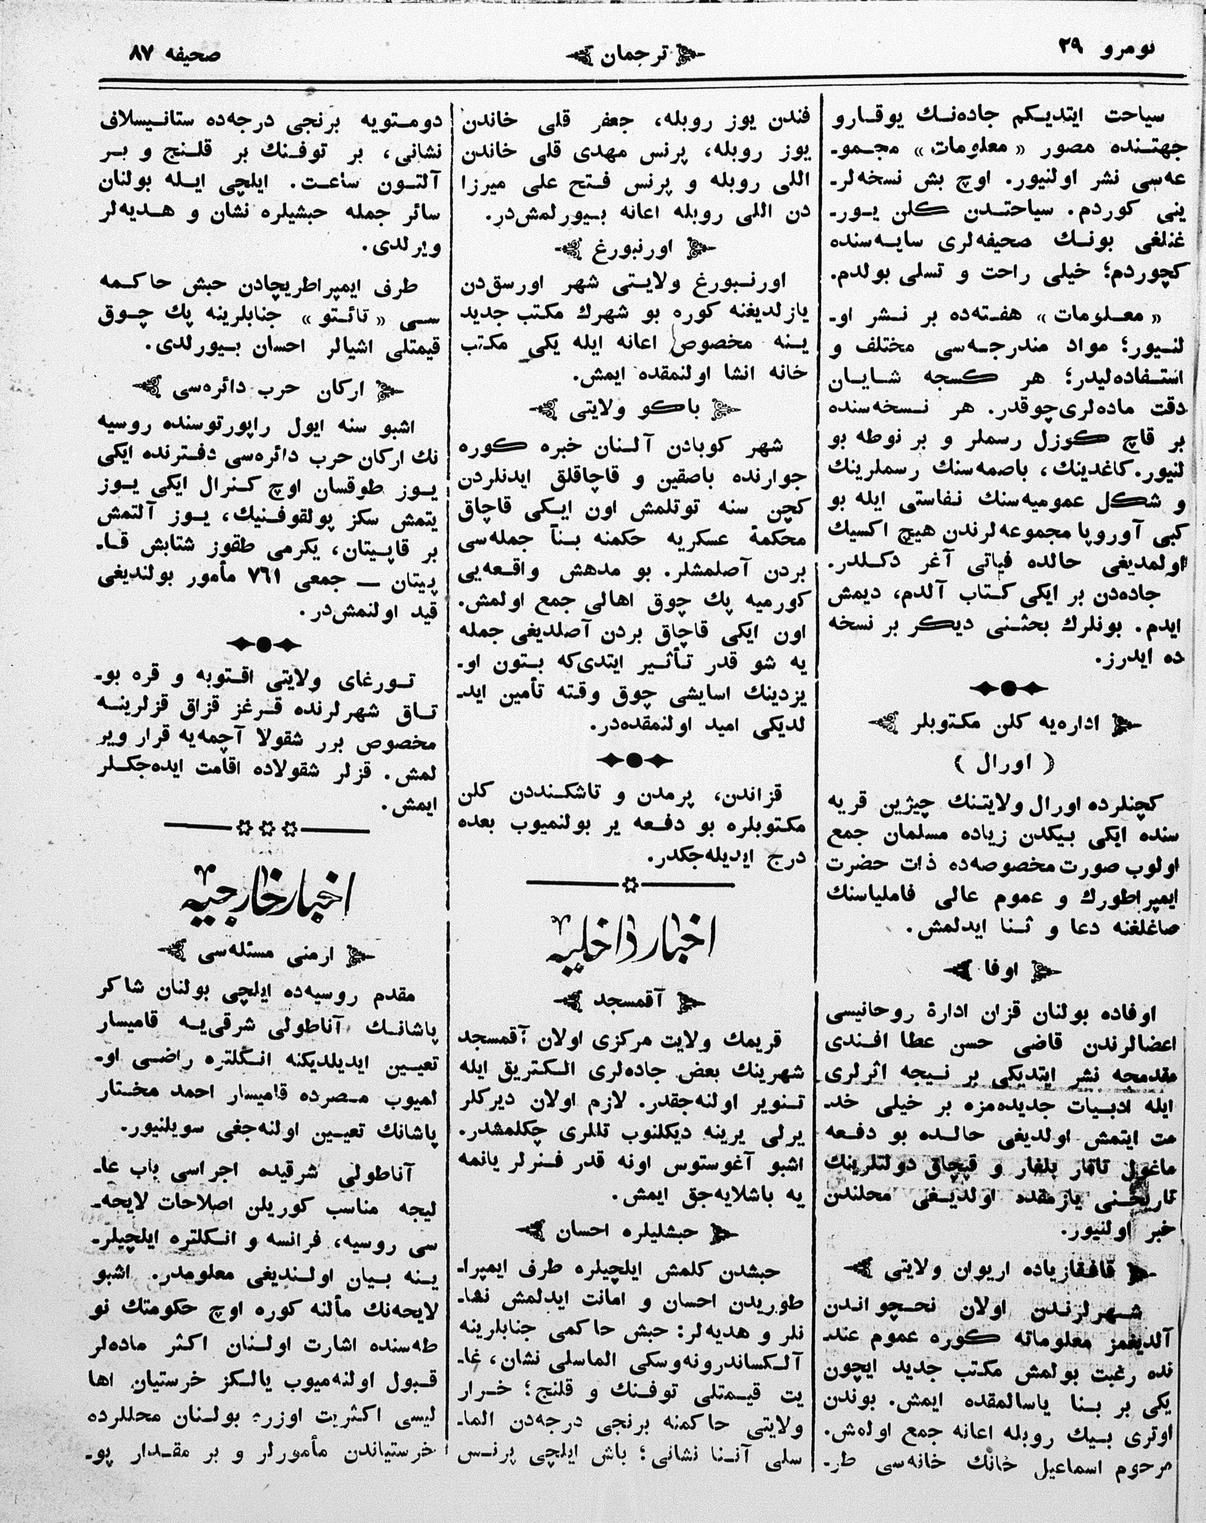 نومرو ٢٩
ترجمان
صحيفه ٨٧
سياحت ايتديكم جاده‌نك يوقارو
جهتنده مصور «معلومات» مجمو-
عه‌سى نشر اولنيور. اوچ بش نسخه‌لر-
ينى كوردم. سياحتدن كلن يور-
غنلغى بونك صحيفه‌لرى سايه‌سنده
كچوردم؛ خيلى راحت و تسلى بولدم.
«معلومات» هفته‌ده بر نشر او-
لنيور؛ مواد مندرجه‌سى مختلف و
استفاده‌ليدر؛ هر كسجه شايان
دقت ماده‌لرى‌چوقدر. هر نسخه‌سنده
بر قاچ كوزل رسملر و بر نوطه بو
لنيور. كاغدينك، باصمه‌سنك رسملرينك
و شكل عموميه‌سنك نفاستى ايله بو
كبى آوروپا مجموعه‌لرندن هيچ اكسيك
اولمديغى حالده فياتى آغر دكلدر.
جاده‌دن بر ايكى كتاب آلدم، ديمش
ايدم. بونلرك بحثنى ديكر بر نسخه
ده ايدرز.
اداره‌يه كلن مكتوبلر
( اورال )
كچنلرده اورال ولايتنك چيژين قريه
سنده ايكى بيكدن زياده مسلمان جمع
اولوب صورت مخصوصه‌ده ذات حضرت
ايمپراطورك و عموم عالى فاملياسنك
صاغلغنه دعا و ثنا ايدلمش.
اوفا
اوفاده بولنان قزان ادارهٔ روحانيسى
اعضالرندن قاضى حسن عطا افندى
مقدمجه نشر ايتديكى بر نيجه اثرلرى
ايله ادبيات جديده‌مزه بر خيلى خد-
مت ايتمش اولديغى حالده بو دفعه
ماغول تاتار بلغار و قپچاق دولتلرينك
تاريخنى يازمقده اولديغى محلندن
خبر اولنيور.
قافقازياده اريوان ولايتى
شهرلرندن اولان نخچواندن
آلديغمز معلوماته كوره عموم عند
نده رغبت بولمش مكتب جديد ايچون
يكى بر بنا ياسالمقده ايمش. بوندن
اوترى بيك روبله اعانه جمع اولمش.
مرحوم اسماعيل خانك خانه‌سى طر-
فندن يوز روبله، جعفر قلى خاندن
يوز روبله، پرنس مهدى قلى خاندن
اللى روبله و پرنس فتح على ميرزا
دن اللى روبله اعانه بيورلمش‌در.
اورنبورغ
اورنبورغ ولايتى شهر اورسق‌دن
يازلديغنه كوره بو شهرك مكتب جديد
ينه مخصوص اعانه ايله يكى مكتب
خانه انشا اولنمقده ايمش.
باكو ولايتى
شهر كوبادن آلنان خبره كوره
جوارنده باصقين و قاچاقلق ايدنلردن
كچن سنه توتلمش اون ايكى قاچاق
محكمهٔ عسكريه حكمنه بناً جمله‌سى
بردن آصلمشلر. بو مدهش واقعه‌يى
كورميه پك چوق اهالى جمع اولمش.
اون ايكى قاچاق بردن آصلديغى جمله
يه شو قدر تأثير ايتدى‌كه بتون او-
يزدينك اسايشى چوق وقته تأمين ايد-
لديكى اميد اولنمقده‌در.
قزاندن، پرمدن و تاشكنددن كلن
مكتوبلره بو دفعه ير بولنميوب بعده
درج ايديله‌جكدر.
اخبار داخليه
آقمسجد
قريمك ولايت مركزى اولان آقمسجد
شهرينك بعض جاده‌لرى الكتريق ايله
تنوير اولنه‌جقدر. لازم اولان ديركلر
يرلى يرينه ديكلنوب تللرى چكلمشدر.
اشبو آغوستوس اونه قدر فنرلر يانمه
يه باشلايه‌جق ايمش.
حبشليلره احسان
حبشدن كلمش ايلچيلره طرف ايمپرا-
طوريدن احسان و امانت ايدلمش نشا-
نلر و هديه‌لر: حبش حاكمى جنابلرينه
آلكساندرونه‌وسكى الماسلى نشان، غا-
يت قيمتلى توفنك و قلنج؛ خرار
ولايتى حاكمنه برنجى درجه‌دن الما-
سلى آننا نشانى؛ باش ايلچى پرنس
دومتويه برنجى درجه‌ده ستانيسلاف
نشانى، بر توفنك بر قلنج و بر
آلتون ساعت. ايلچى ايله بولنان
سائر جمله حبشيلره نشان و هديه‌لر
ويرلدى.
طرف ايمپراطريچادن حبش حاكمه
سى «تائتو» جنابلرينه پك چوق
قيمتلى اشيالر احسان بيورلدى.
اركان حرب دائره‌سى
اشبو سنه ايول راپورتوسنده روسيه
نك اركان حرب دائره‌سى دفترنده ايكى
يوز طوقسان اوچ كنرال ايكى يوز
يتمش سكز پولقوفنيك، يوز آلتمش
بر قاپيتان، يكرمى طقوز شتابش قا-
پيتان — جمعى ٧٦١ مأمور بولنديغى
قيد اولنمش‌در.
تورغاى ولايتى اقتوبه و قره بو-
تاق شهرلرنده قرغز قزاق قزلرينه
مخصوص برر شقولا آچمه‌يه قرار وير
لمش. قزلر شقولاده اقامت ايده‌جكلر
ايمش.
اخبار خارجيه
ارمنى مسئله‌سى
مقدم روسيه‌ده ايلچى بولنان شاكر
پاشانك آناطولى شرقى‌يه قاميسار
تعيين ايديلديكنه انكلتره راضى او-
لميوب مصرده قاميسار احمد مختار
پاشانك تعيين اولنه‌جغى سويلنيور.
آناطولى شرقيده اجراسى باب عا-
ليجه مناسب كوريلن اصلاحات لايحه-
سى روسيه، فرانسه و انكلتره ايلچيلر-
ينه بيان اولنديغى معلومدر. اشبو
لايحه‌نك مألنه كوره اوچ حكومتك نو
طه‌سنده اشارت اولنان اكثر ماده‌لر
قبول اولنه‌ميوب يالكز خرستيان اها
ليسى اكثريت اوزره بولنان محللرده
خرستياندن مأمورلر و بر مقدار پو-